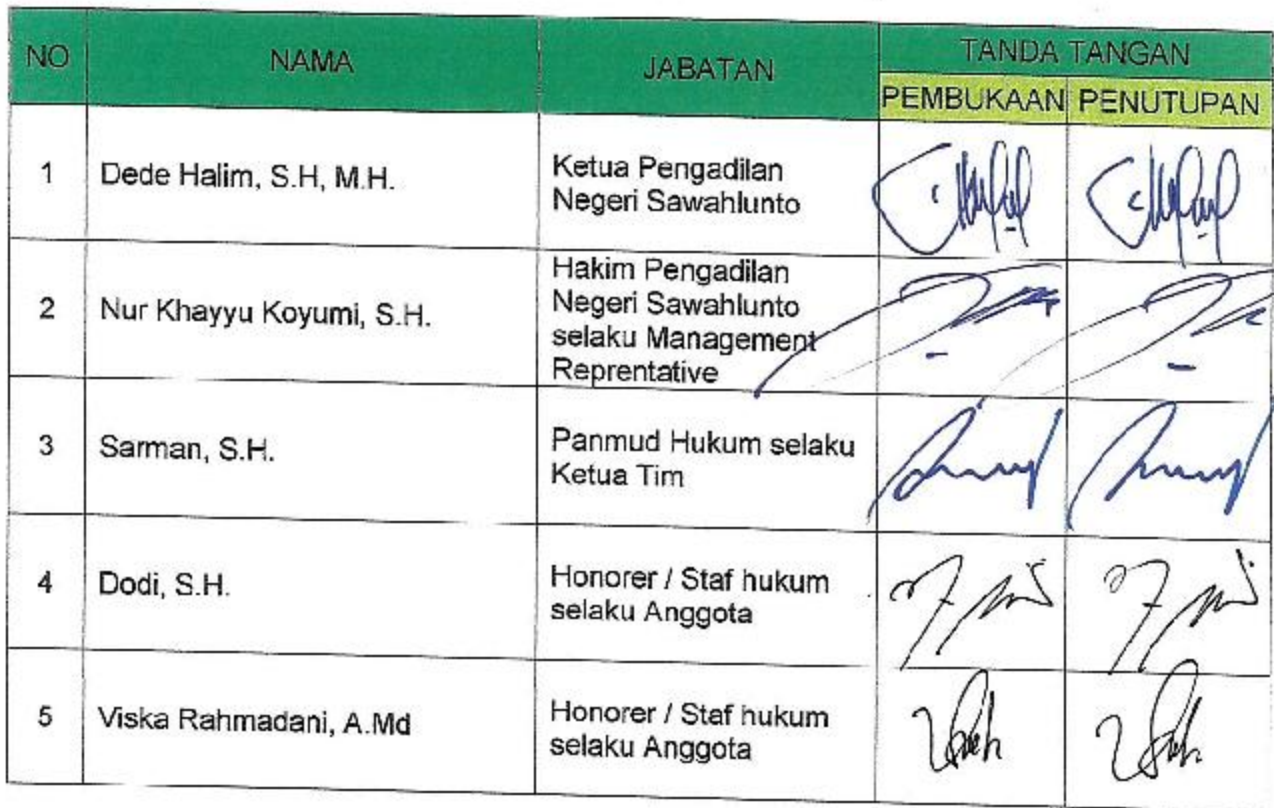 NO NAMA JABATAN TANDA TANGAN
PEMBUKAAN PENUTUPAN
1 Dede Halim, S.H, M.H. Ketua Pengadilan
Negeri Sawahlunto
2 Nur Khayyu Koyumi, S.H. Hakim Pengadilan
Negeri Sawahlunto
selaku Management
Reprentative
3 Sarman, S.H. Panmud Hukum selaku
Ketua Tim
4 Dodi, S.H. Honorer / Staf hukum
selaku Anggota
5 Viska Rahmadani, A.Md Honorer / Staf hukum
selaku Anggota